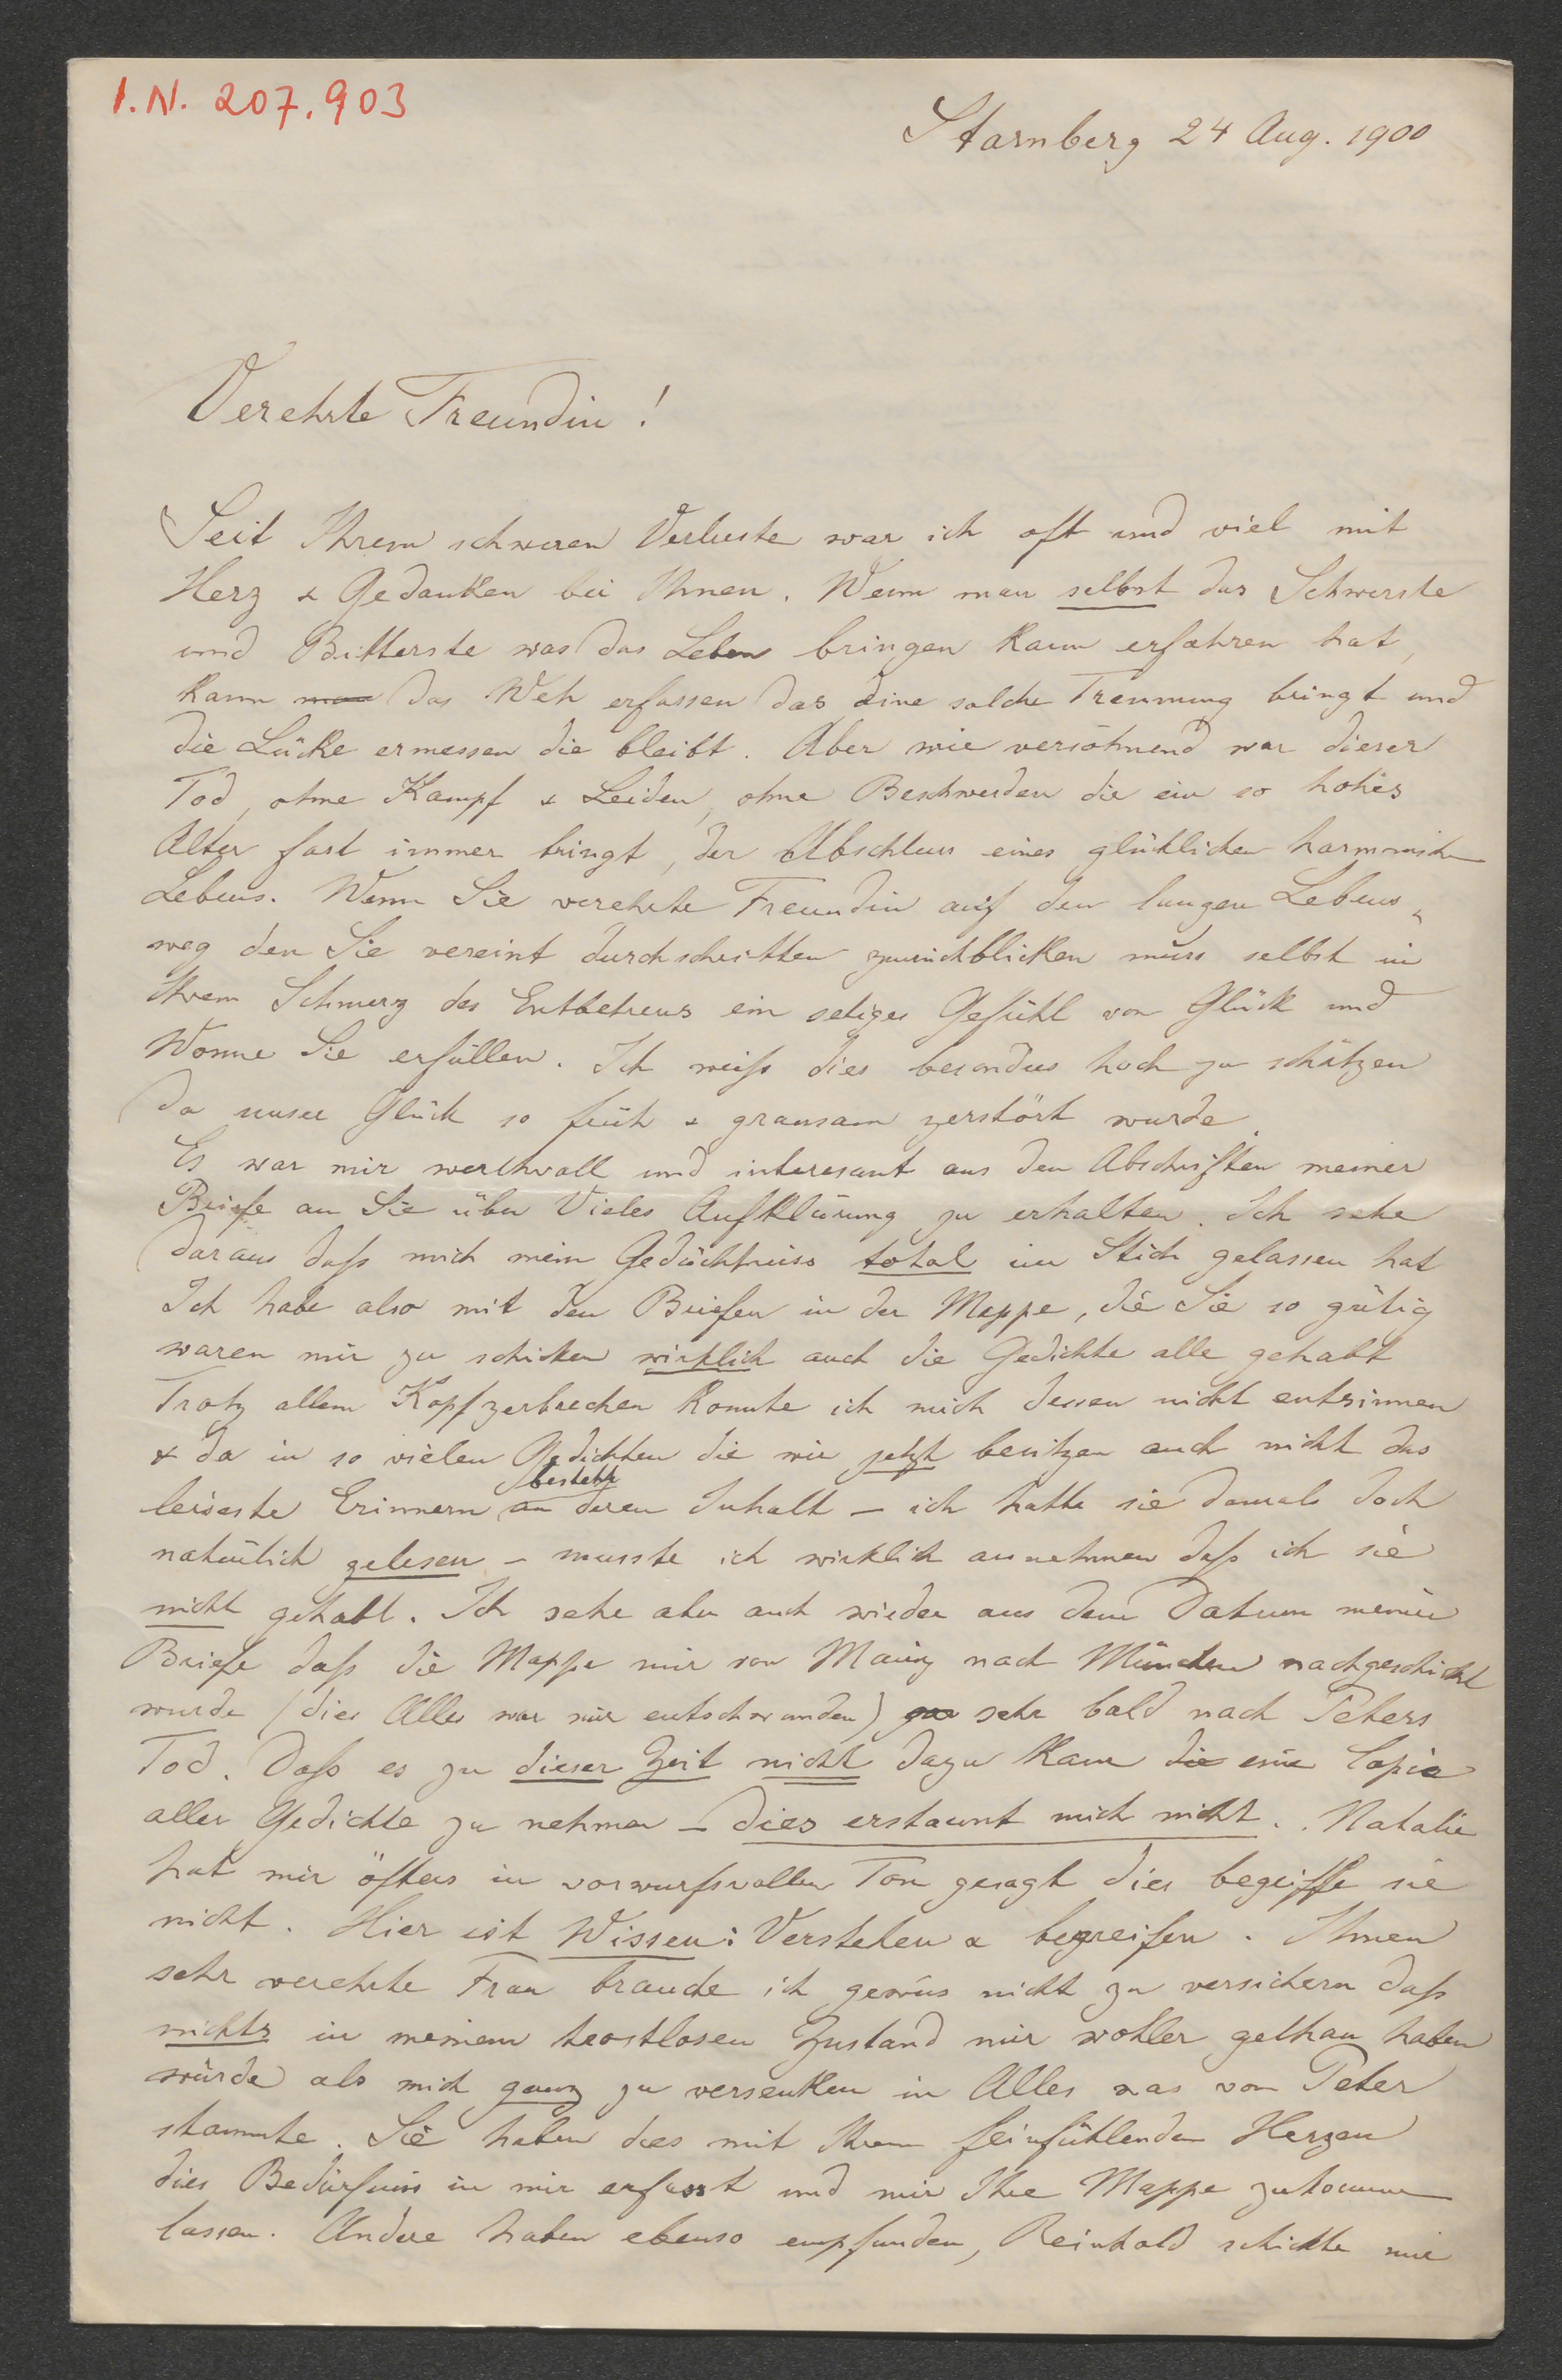 I.N. 207.903
Starnberg 24 Aug. 1900
Verehrte Freundin!
Seit Ihrem schweren Verluste war ich oft und viel mit
Herz & Gedanken bei Ihnen. Wenn man selbst das Schwerste
und Bitterste was das Leben bringen kann erfahren hat,
kann man das Weh erfassen das eine solche Trennung bringt und
die Lücke ermessen die bleibt. Aber wie versöhnend war dieser
Tod, ohne Kampf & Leiden, ohne Beschwerden die ein so hohes
Alter fast immer bringt, der Abschluss eines glücklichen harmonischen
Lebens. Wenn Sie verehrte Freundin auf den langen Lebens„
weg den Sie vereint durchschritten zurückblicken muss selbst in
Ihrem Schmerz des Entbehrens ein seliges Gefühl von Glück und
Wonne Sie erfüllen. Ich weiß dies besonders hoch zu schätzen
da unser Glück so früh & grausam zerstört wurde.
Es war mir werthvoll und interesant aus den Abschriften meiner
Briefe an Sie über Vieles Aufklärung zu erhalten. Ich sehe
daraus daß mich mein Gedächtniss total im Stich gelassen hat
Ich habe also mit den Briefen in der Mappe, die Sie so gütig
waren mir zu schicken wirklich auch die Gedichte alle gehabt
Trotz allem Kopfzerbrechen konnte ich mich dessen nicht entsinnen
& da in so vielen Gedichten die wir jetzt besitzen auch nicht das
leiseste Erinnern besteht an deren Inhalt – ich hatte sie damals doch
natürlich gelesen – musste ich wirklich annehmen daß ich sie
nicht gehabt. Ich sehe aber auch wieder aus dem Datum meiner
Briefe daß die Mappe mir von Mainz nach München nachgeschickt
wurde (dies Alles war mir entschwunden) sehr bald nach Peters
Tod. Daß es zu dieser Zeit nicht dazu kam die eine Copie
aller Gedichte zu nehmen – dies erstaunt mich nicht. Natalie
hat mir öfters in vorwurfsvollem Ton gesagt dies begriffe sie
nicht. Hier ist Wissen: Verstehen & begreifen. Ihnen
sehr verehrte Frau brauche ich gewiss nicht zu versichern daß
nichts in meinem trostlosen Zustand mir wohler gethan haben
würde als mich ganz zu versenken in Alles was von Peter
stammte. Sie haben dies mit Ihrem feinfühlenden Herzen
dies Bedürfniss in mir erfasst und mir Ihre Mappe zukommen
lassen. Andere haben ebenso empfunden, Reinhold schickte mir